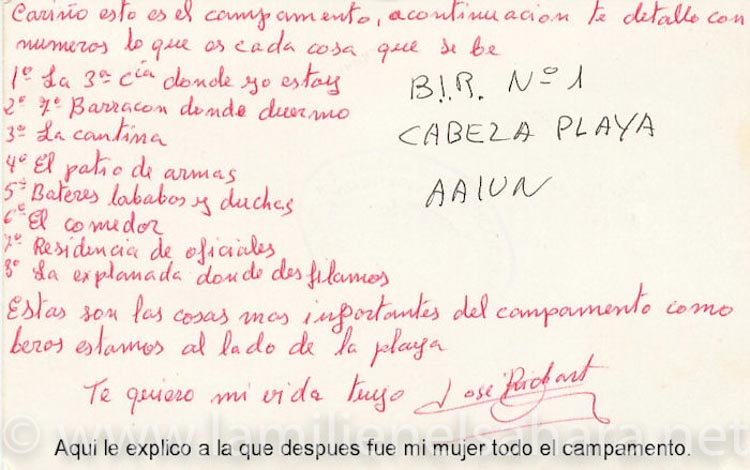 Cariño esto es el campamento, acontinuacion te detallo con
numeros lo que es cada cosa que se be
1º La 3ª Cia donde yo estoy
2º 7º Barracon donde duermo
3º La cantina
4º El patio de armas
5º Bateres lababos y duchas
6º El comedor
7º Residencia de oficiales
8º La explanada donde desfilamos
B.I.R. Nº 1
CABEZA PLAYA
AAIUN
Estas son las cosas mas importantes del campamento como
beras estamos al lado de la playa
Te quiero mi vida tuyo José Richart
© www.lamilienelsahara.net
Aqui le explico a la que despues fue mi mujer todo el campamento.